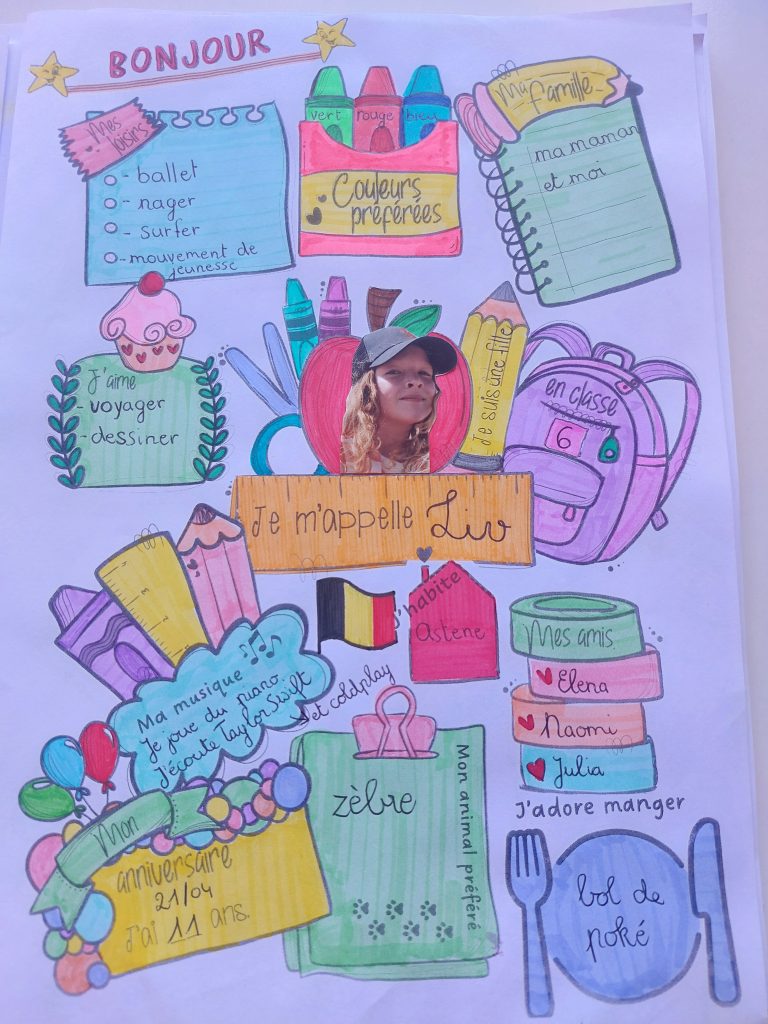 BONJOUR
Mes
loisirs
- ballet
- nager
- surfer
- mouvement de
jeunesse
vert rouge bleu
Couleurs
préférées
Ma famille
ma maman
et moi
J'aime
- voyager
- dessiner
Je suis une fille
en classe
6
Je m'appelle Liv
J'habite
Astene
Mes amis
Elena
Naomi
Julia
Ma musique
Je joue du piano
J'écoute Taylor Swift
et coldplay
Mon
anniversaire
21/04
J'ai 11 ans.
zèbre
Mon animal préféré
J'adore manger
bol de
poké